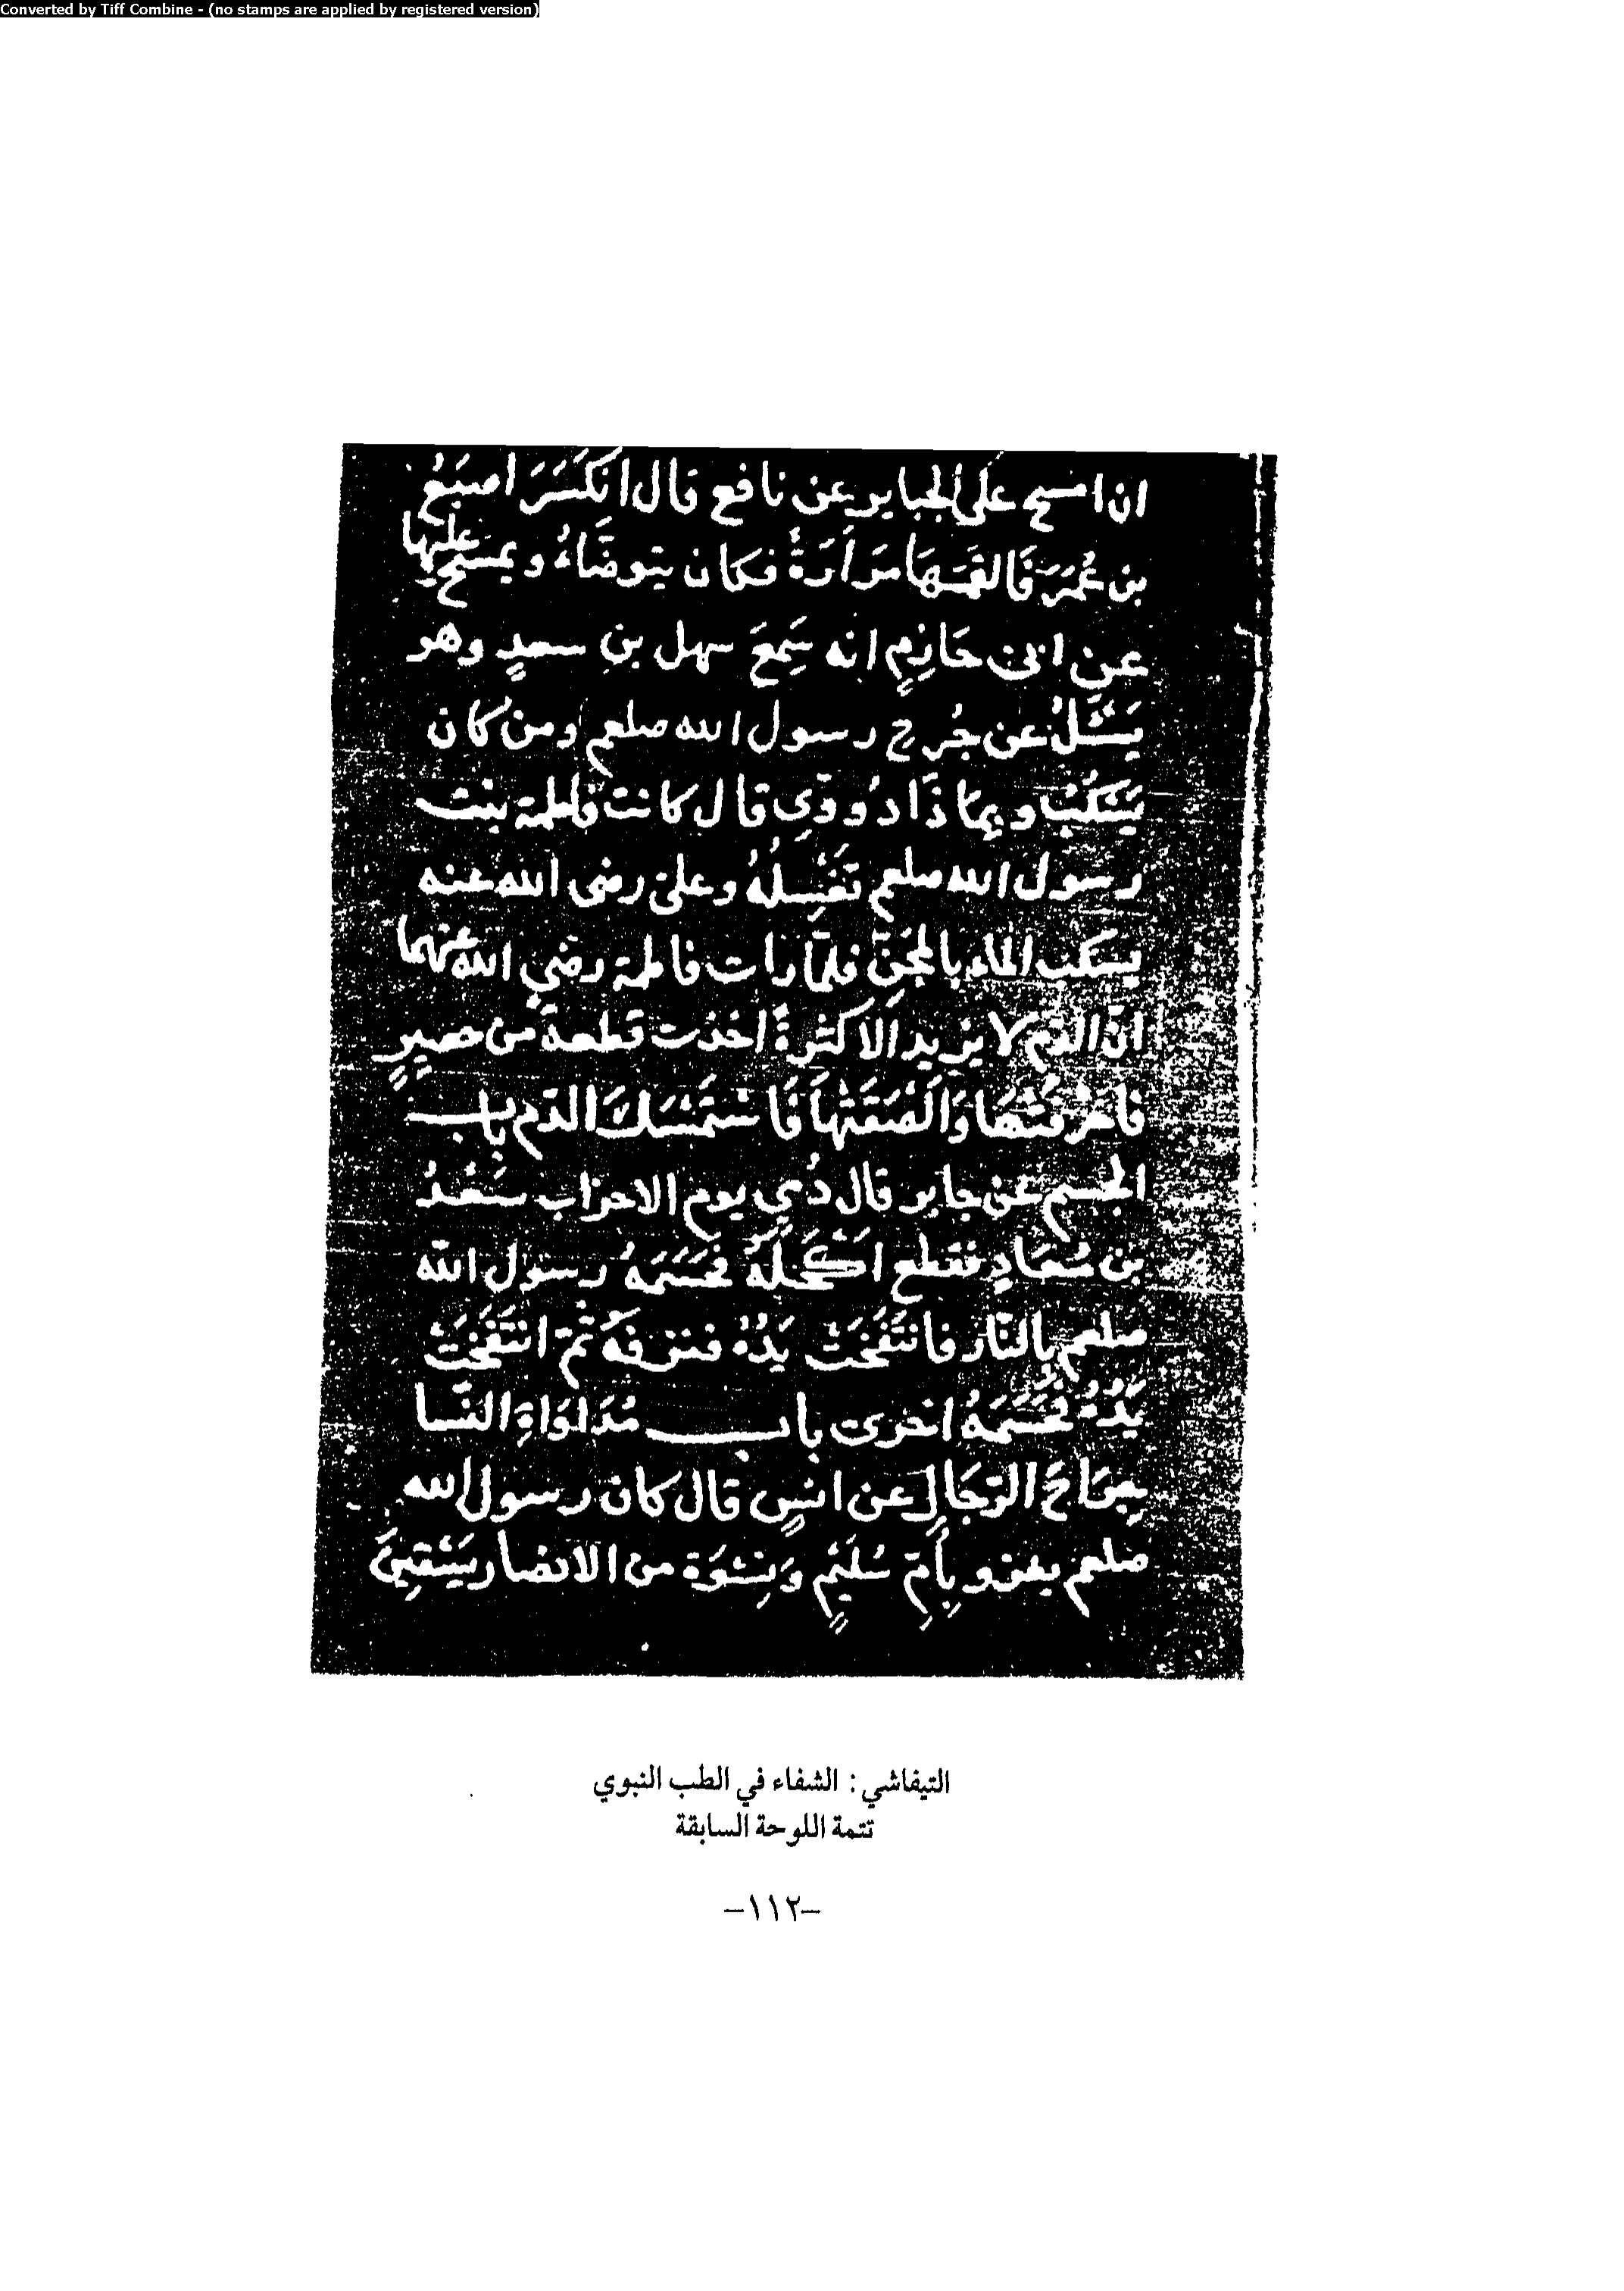 Converted by Tiff Combine - (no stamps are applied by registered version)
ان امسح على الجباير عن نافع قال انكَسَرَ اصبَعُ
بن عُمَرَ فَالقَمَهَا مَرَارَةً فكان يتوضَّاءُ ويمسحُ عليها
عن ابى حَازِمٍ انه سَمِعَ سهل بنِ سعدٍ وهو
يَسْئَلُ عن جُرح رسول الله صلعم ومن كان
يَسْكُبُ وبما ذَا دُووِىَ قال كانت فاطمة بنت
رسول الله صلعم تَغْسِلُهُ وعلىّ رضى الله عنه
يسكب الماء بالمجَنّ فلمّا رات فاطمة رضي الله عنهما
انّ الدّم لا يزيد الّا كثرةً اخذت قطعة من حصيرٍ
فاحرقَتْهَا وَالصَقَتْهَا فَاسْتَمْسَكَ الدّم باب
الحسم عن جابر قال رُمي يوم الاحزاب سَعْدُ
بن مُعَاذٍ فقطع اكْحَلَهُ فحَسَمَهُ رسول الله
صلعم بالنّار فانتَفَخَتْ يَدُهُ فنزفَهُ ثمّ انتَفَخَتْ
يَدُهُ فحَسَمَهُ اخرى باب مُدَاوَاةِ النّسا
جِرَاحَ الرّجَالِ عن انسٍ قال كان رسول الله
صلعم يغزو بِأُمِّ سُلَيْمٍ وَنِسْوَة من الانصار يَسْقِينَ
التيفاشي : الشفاء في الطب النبوي
تتمة اللوحة السابقة
-١١٢-